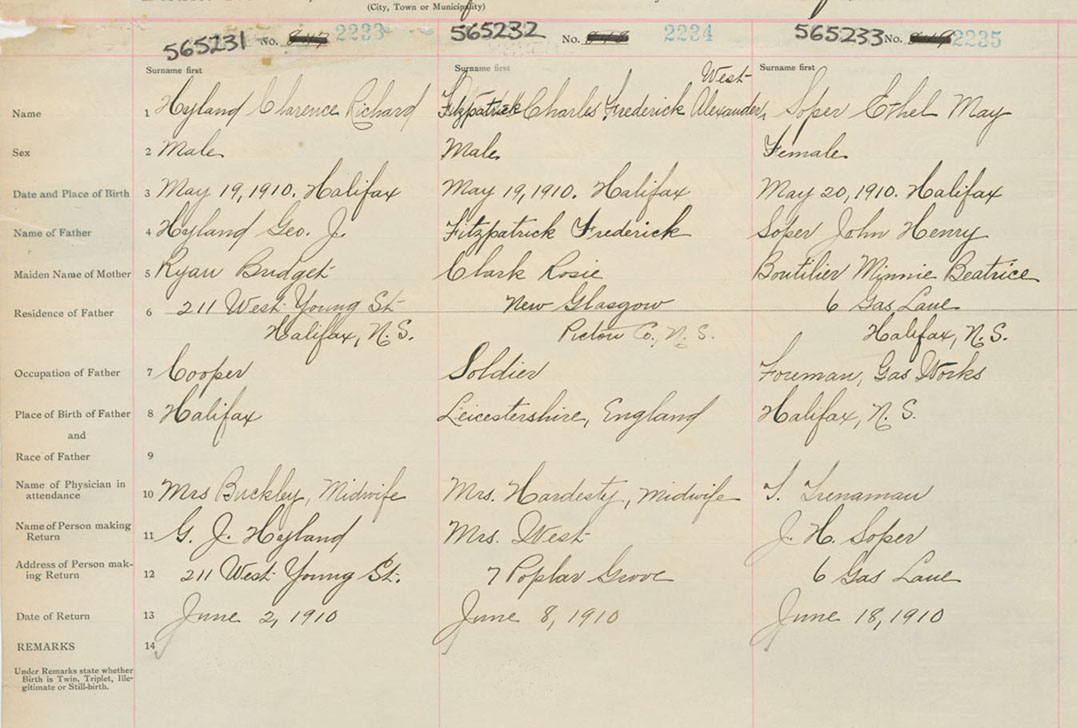 (City, Town or Municipality)
565231 No. 2233 565232 No. 2234 565233 No. 2235
Surname first Surname first West Surname first
Name 1 Hyland Clarence Richard Fitzpatrick Charles Frederick Alexander, Soper Ethel May
Sex 2 Male Male Female
Date and Place of Birth 3 May 19, 1910. Halifax May 19, 1910. Halifax May 20, 1910. Halifax
Name of Father 4 Hyland Geo. J. Fitzpatrick Frederick Soper John Henry
Maiden Name of Mother 5 Ryan Bridget Clark Rosie Boutilier Minnie Beatrice
Residence of Father 6 211 West Young St New Glasgow 6 Gas Lane
Halifax, N.S. Pictou Co., N.S. Halifax, N.S.
Occupation of Father 7 Cooper Soldier Foreman, Gas Works
Place of Birth of Father 8 Halifax Leicestershire, England Halifax, N.S.
and
Race of Father 9
Name of Physician in
attendance 10 Mrs Buckley, Midwife Mrs. Hardesty, Midwife T. Trenaman
Name of Person making
Return 11 G. J. Hyland Mrs. West J. H. Soper
Address of Person mak-
ing Return 12 211 West Young St. 7 Poplar Grove 6 Gas Lane
Date of Return 13 June 2, 1910 June 8, 1910 June 18, 1910
REMARKS 14
Under Remarks state whether
Birth is Twin, Triplet, Ille-
gitimate or Still-birth.